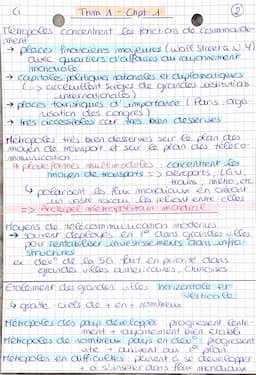 Thm 1 - Chpt 1
2
Métropoles concentrent les fonctions de commande-
ment
→ places financières majeures (Wall Street à N.Y)
avec quartiers d'affaires au rayonnement
mondiale
→ capitales politiques nationales et diplomatiques
(=> accueillent sièges de grandes institutions
internationales)
→ places touristiques d'importance (Paris : orga-
nisation des congrès)
→ très accessibles car très bien desservies
Métropoles très bien desservies sur le plan des
moyen de transport et sur le plan des téléco-
mmunication
plateformes multimodales concentrent les
moyen de transports => aéroports, LGV,
trains, métro, etc
↳ polarisent les flux mondiaux en créant
un vaste réseau les reliant entre elles
=> Archipel métropolitain mondial
Moyens de télécommunication modernes
→ souvent déployés en 1er dans grandes villes
pour rentabiliser investissements dans infra-
structures
ex : de la 5G fait en priorité dans
grandes villes américaines, chinoises
Étalement des grandes villes horizontale et
verticale
↳ gratte-ciels de + en + nombreux
Métropoles des pays développer progressent lente
ment + rayonnement bien établi
Métropoles de nombreux pays en progressent
vite + arrivent au 1er plan
Métropoles en difficultés : peinent à se développer
+ à s'insérer dans flux mondiaux